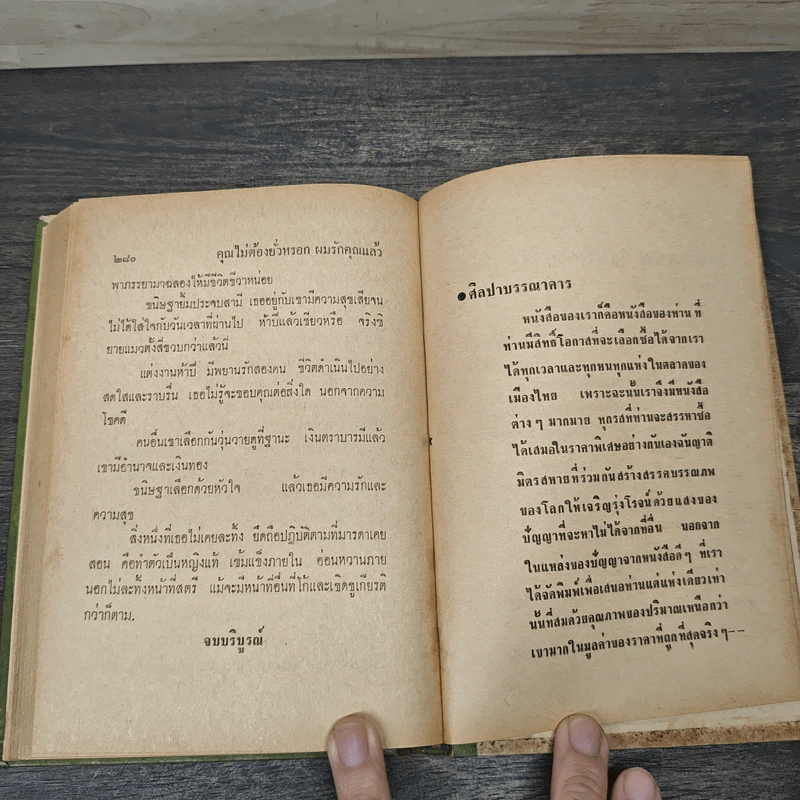 ๒๘๐ คุณไม่ต้องยั่วหรอก ผมรักคุณแล้ว
พาภรรยามาฉลองให้มีชีวิตชีวาหน่อย
ขนิษฐายิ้มประจบสามี เธออยู่กับเขามีความสุขเสียจน
ไม่ได้ใส่ใจกับวันเวลาที่ผ่านไป ห้าปีแล้วเชียวหรือ จริงซิ
ยายแมวตั้งสี่ขวบกว่าแล้วนี่
แต่งงานห้าปี มีพยานรักสองคน ชีวิตดำเนินไปอย่าง
สดใสและราบรื่น เธอไม่รู้จะขอบคุณต่อสิ่งใด นอกจากความ
โชคดี
คนอื่นเขาเลือกกันวุ่นวายดูที่ฐานะ เงินตราบารมีแล้ว
เขามีอำนาจและเงินทอง
ขนิษฐาเลือกด้วยหัวใจ แล้วเธอมีความรักและ
ความสุข
สิ่งหนึ่งที่เธอไม่เคยละทิ้ง ยึดถือปฎิบัติตามที่มารดาเคย
สอน คือทำตัวเป็นหญิงแท้ เข้มแข็งภายใน อ่อนหวานภาย
นอกไม่ละทิ้งหน้าที่สตรี แม้จะมีหน้าที่อื่นที่โก้และเชิดชูเกียรติ
กว่าก็ตาม.
จบบริบูรณ์
●ศิลปาบรรณาคาร
หนังสือของเราก็คือหนังสือของท่าน ที่
ท่านมีสิทธิ์โอกาสที่จะเลือกซื้อได้จากเรา
ได้ทุกเวลาและทุกหนทุกแห่งในตลาดของ
เมืองไทย เพราะฉะนั้นเราจึงมีหนังสือ
ต่าง ๆ มากมาย ทุกรสที่ท่านจะสรรหาซื้อ
ได้เสมอในราคาพิเศษอย่างกันเองฉันญาติ
มิตรสหายที่ร่วมกันสร้างสรรค์บรรณภพ
ของโลกให้เจริญรุ่งโรจน์ด้วยแสงของ
ปัญญาที่จะหาไม่ได้จากที่อื่น นอกจาก
ในแหล่งของปัญญาจากหนังสือดี ๆ ที่เรา
ได้จัดพิมพ์เพื่อเสนอท่านแต่แห่งเดียวเท่า
นั้นที่สมด้วยคุณภาพของปริมาณเหนือกว่า
เขามากในมูลค่าของราคาที่ถูกที่สุดจริง ๆ--